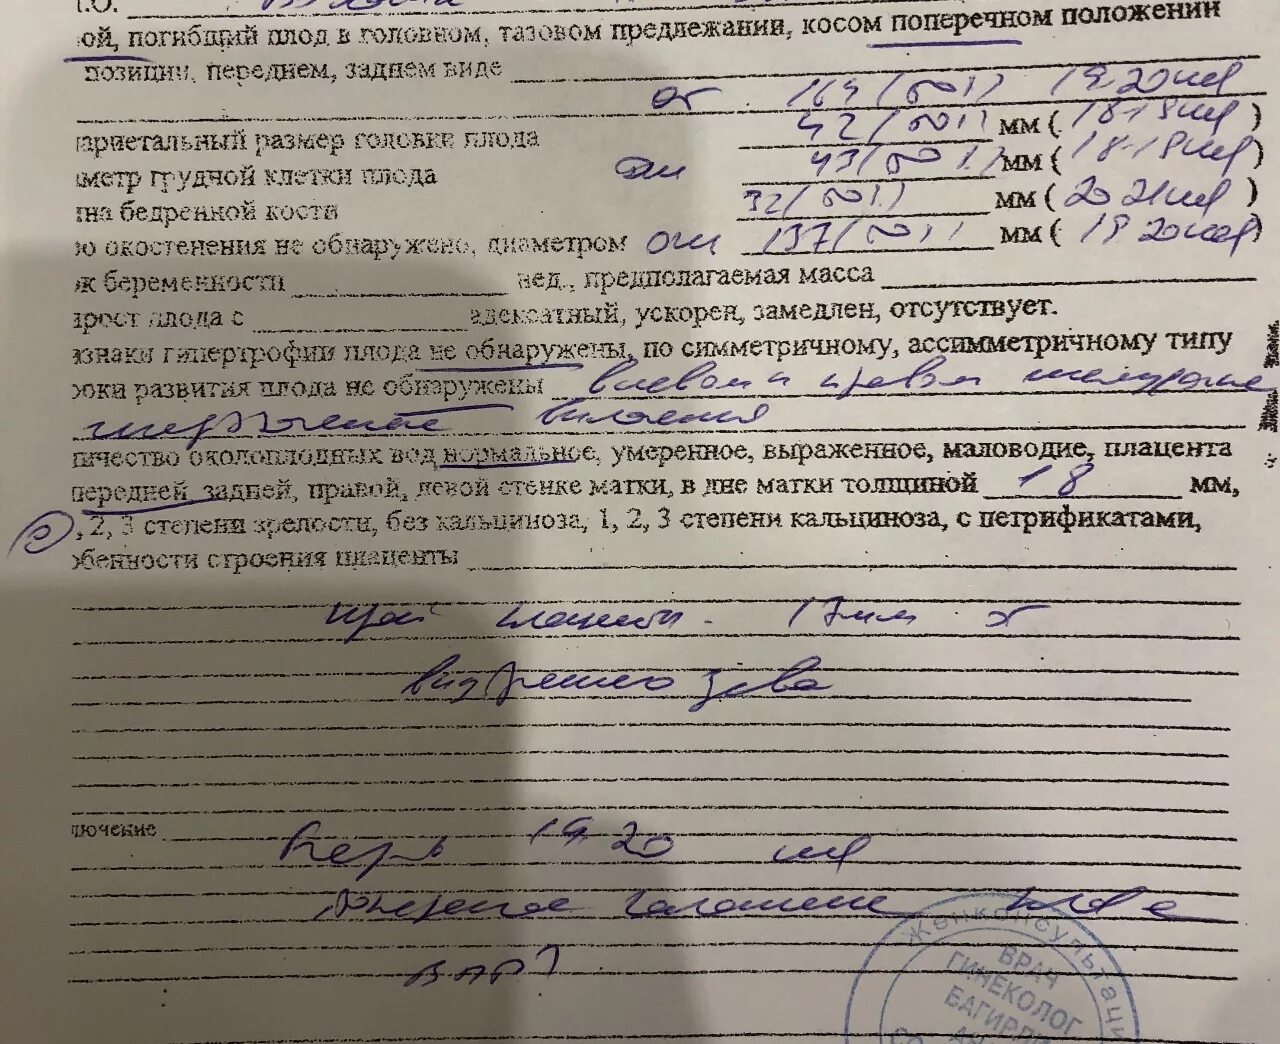 .О.
ой, погибший плод в головном, тазовом предлежании, косом поперечном положении
позиции, переднем, заднем виде
164 19-20 нед
ариетальный размер головки плода 42 мм ( 18-18 нед )
метр грудной клетки плода 43 мм ( 18-18 нед )
на бедренной кости 32 мм ( 20 21 нед )
ю окостенения не обнаружено, диаметром 137 мм ( 19 20 нед )
ж беременности нед., предполагаемая масса
рост плода с адекватный, ускорен, замедлен, отсутствует.
изнаки гипертрофии плода не обнаружены, по симметричному, ассимметричному типу
роки развития плода не обнаружены в левом и правом желудочке
включения
личество околоплодных вод нормальное, умеренное, выраженное, маловодие, плацента
передней, задней, правой, левой стенке матки, в дне матки толщиной 18 мм,
0, 2, 3 степени зрелости, без кальциноза, 1, 2, 3 степени кальциноза, с петрификатами,
обенности строения плаценты
край плаценты 17 мм от
внутреннего зева
лючение
Бер-ть 19 20 нед
ВПР?
Женконсультаци
ВРАЧ
ГИНЕКОЛОГ